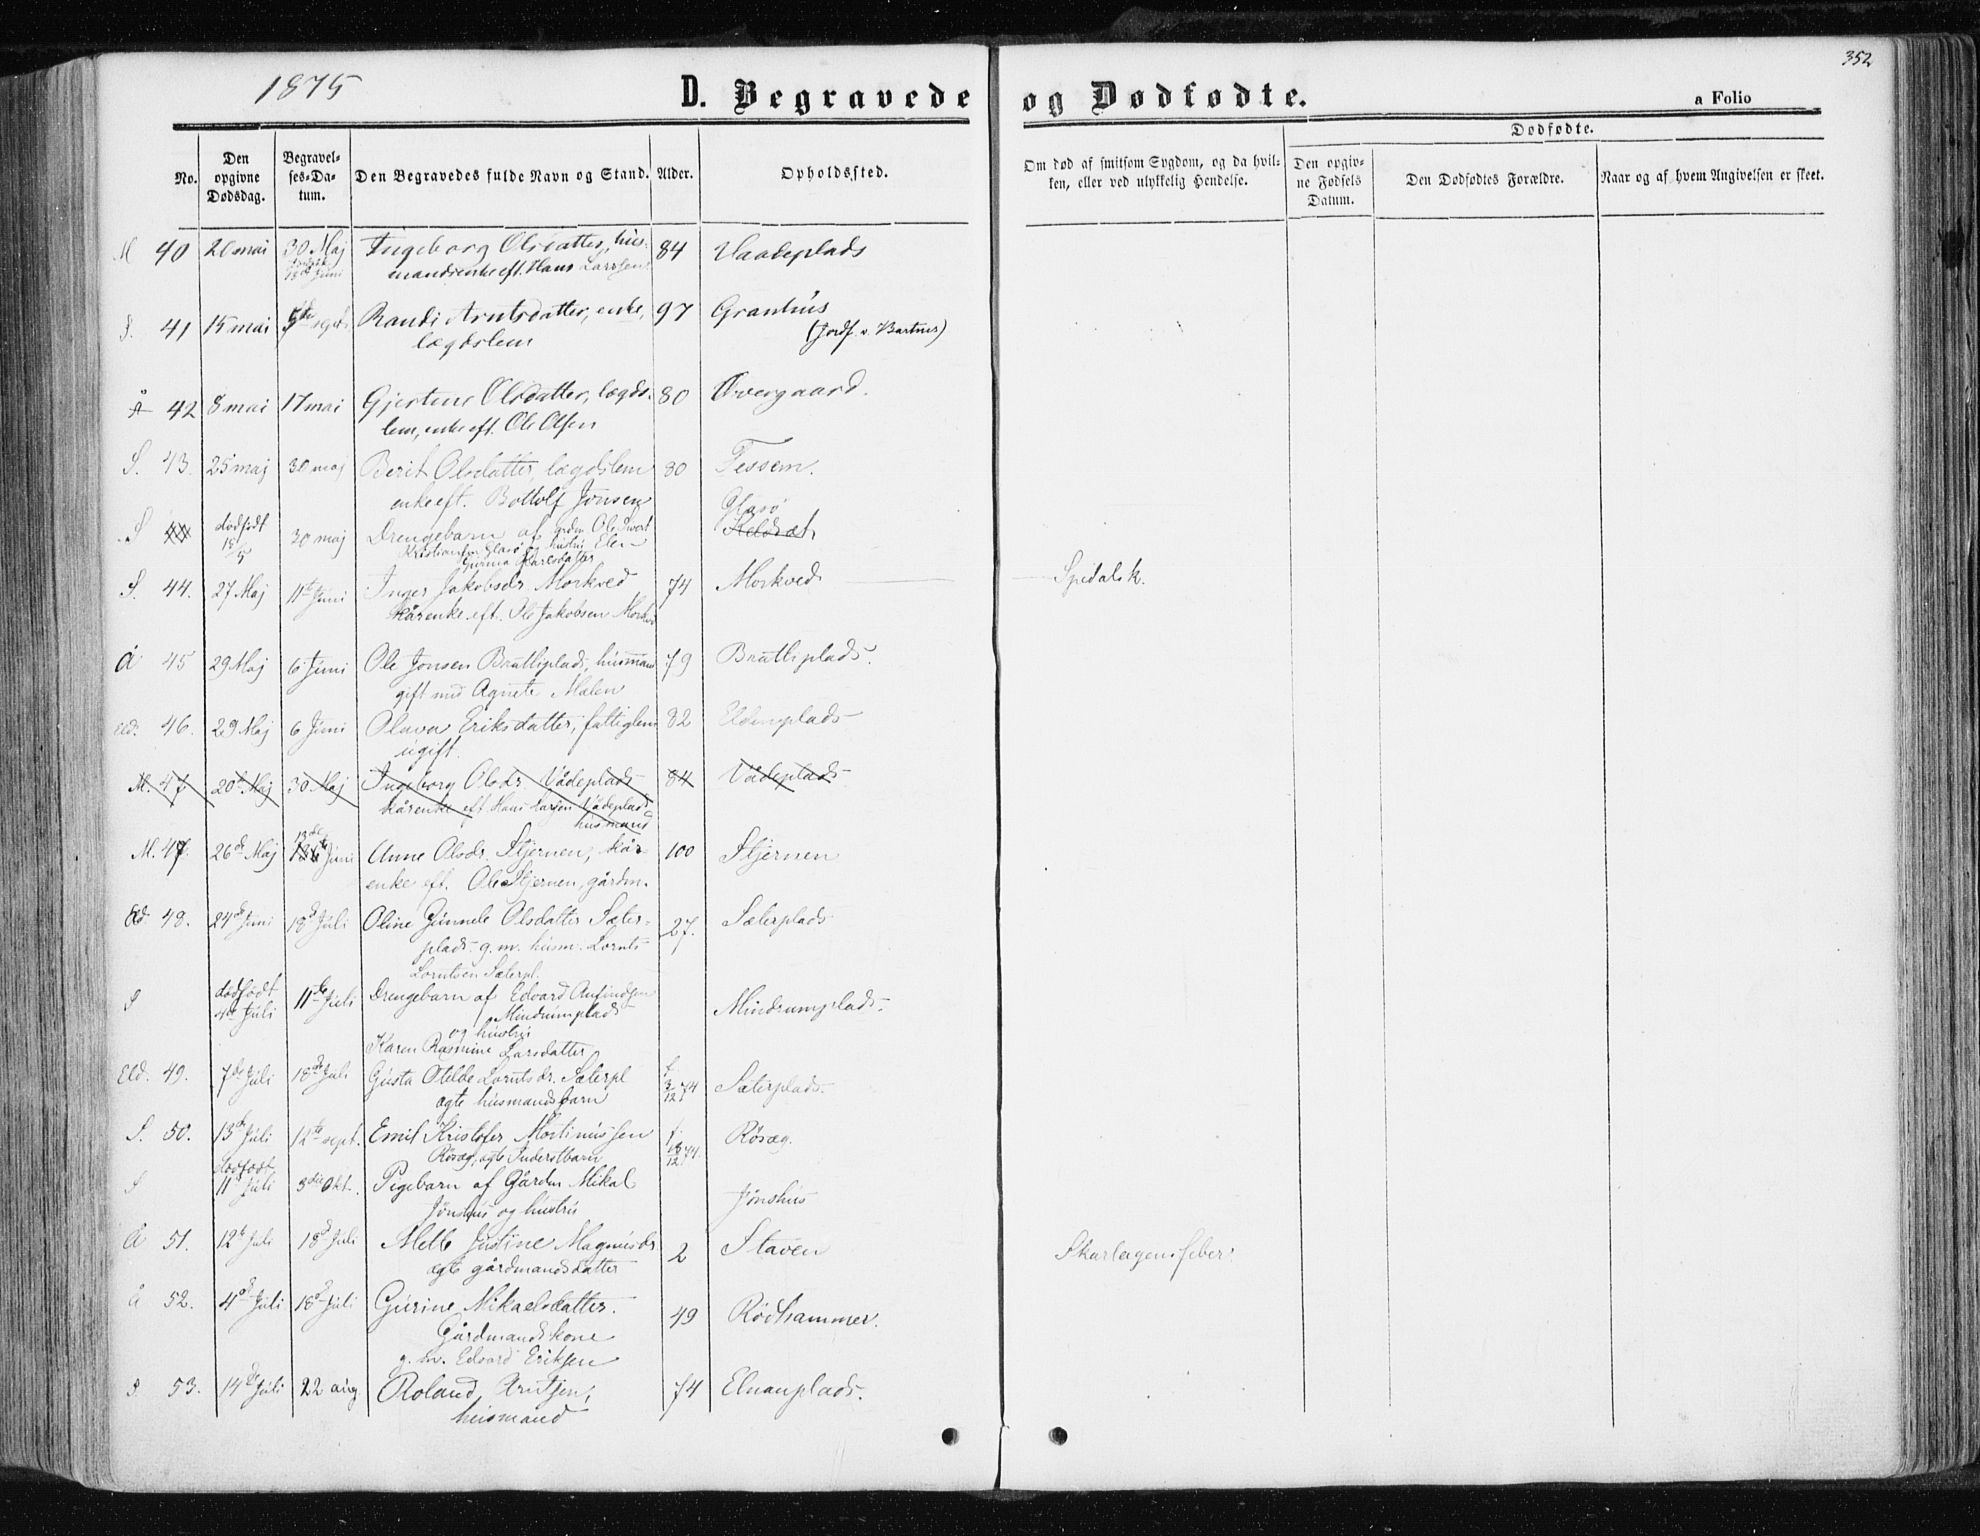 352
1875
D. Begravede og Dødfødte.
a Folio
No.
Den opgivne Dødsdag.
Begravelses-Datum.
Den Begravedes fulde Navn og Stand.
Alder.
Opholdssted.
Om død af smitsom Sygdom, og da hvilken, eller ved ulykkelig Hendelse.
Dødfødte.
Den opgivne Fødsels Datum.
Den Dødfødtes Forældre.
Naar og af hvem Angivelsen er skeet.
M 40 20 mai 30 Maj Ingeborg Olsdatter, hus- 84 Vaadeplads
mandsenke eft. Hans Larssen
S. 41 15 mai Randi Arntsdatter, enke, 97 Granhus
lægdslem (Jordf. v. Bartnes)
Å 42 8 mai 17 mai Gjertine Olsdatter, lægds- 80 Overgaard.
lem, enke eft. Ole Olsen
S. 43. 25 maj 30 maj Berit Olsdatter, lægdslem 80 Fessem.
enke eft. Bottolf Jonsen
S 44 dødfødt 18/5 30 maj Drengebarn af grdm Ole Sivert Glasø Keldsæt
Kristiansen Glasø og hustru Elen
Gurina Karlsdatter
S. 44. 27 Maj 11te Juni Inger Jakobsdr Morkved 74 Morkved Spedalsk.
kårenke eft. Ole Jakobsen Morkv
Å 45 29 Maj 6 Juni Ole Jonsen Brattliplads, husmand 79 Brattliplads.
gift med Agnete Mælen
Eld. 46. 29 Maj 6 Juni Olava Eriksdatter, fattiglem 82 Eldenplads
ugift.
M. 47 20de Maj 30 Maj Ingeborg Olsdr Vådeplads 84 Vådeplads
kårenke eft Hans Larsen Vådeplads
husmand
M. 47. 26de Maj 13de Juni Anne Olsdr. Stjernen, kår- 100 Stjernen
enke eft. Ole Stjernen, gårdm.
Eld 48. 24de Juni 18de Juli Oline Gunnele Olsdatter Sæter- 27. Sæterplads
plads g. m. husm. Lornts
Lorntsen Sæterpl.
S dødfødt 4de Juli 11te Juli Drengebarn af Edvard Anfindsen Mindrumplads
Mindrumplads
og hustru
Karen Rasmine Larsdatter
Eld. 49. 7de Juli 18de Juli Gusta Otelde Lorntsdr. Sæterpl f. 3/12 74 Sæterplads.
ægte husmandsbarn
S. 50. 13de Juli 12te sept. Emil Kristofer Mortinussen f. 18/12 74. Røsæg.
Røsæg, ægte Inderstbarn
S dødfødt 11te Juli 3die Okt. Pigebarn af Gårdm Mikal Jønshus
Jønshus og hustru
Å 51. 12te Juli 18de Juli Mette Justine Magnusdr 2 Staven Skarlagensfeber
ægte gårdmandsdatter
Å 52. 4de Juli 18de Juli Gurine Mikaelsdatter. 49 Rødhammer.
Gårdmandskone
g. m. Edvard Eriksen
S. 53. 14de Juli 22 aug Roland Arntsen, 74 Elnanplads.
husmand